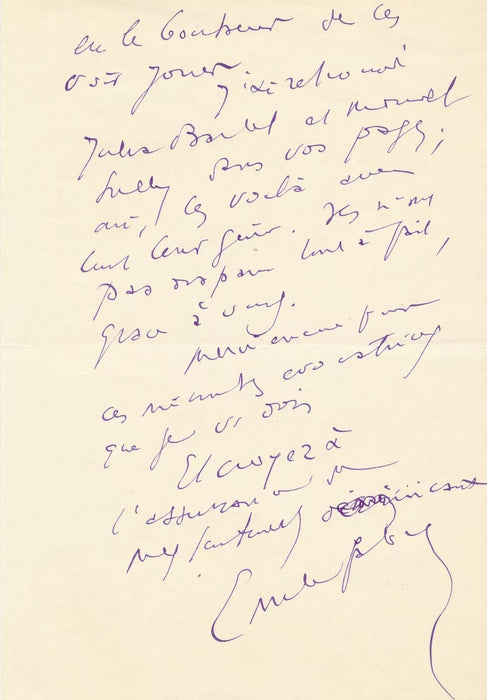 eu le bonheur de les
voir jouer.
J'ai retrouvé
Julia Bartet et Mounet
Sully dans vos pages ;
oui, les voilà avec
tout leur génie. Ils n'ont
pas disparu tout à fait,
grâce à vous.
Merci encore pour
ces minutes
que je vous dois
Et croyez à
l'assurance de
mes
Emile